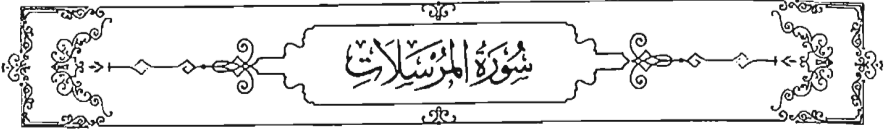 سُورَةُ المُرْسَلَاتِ